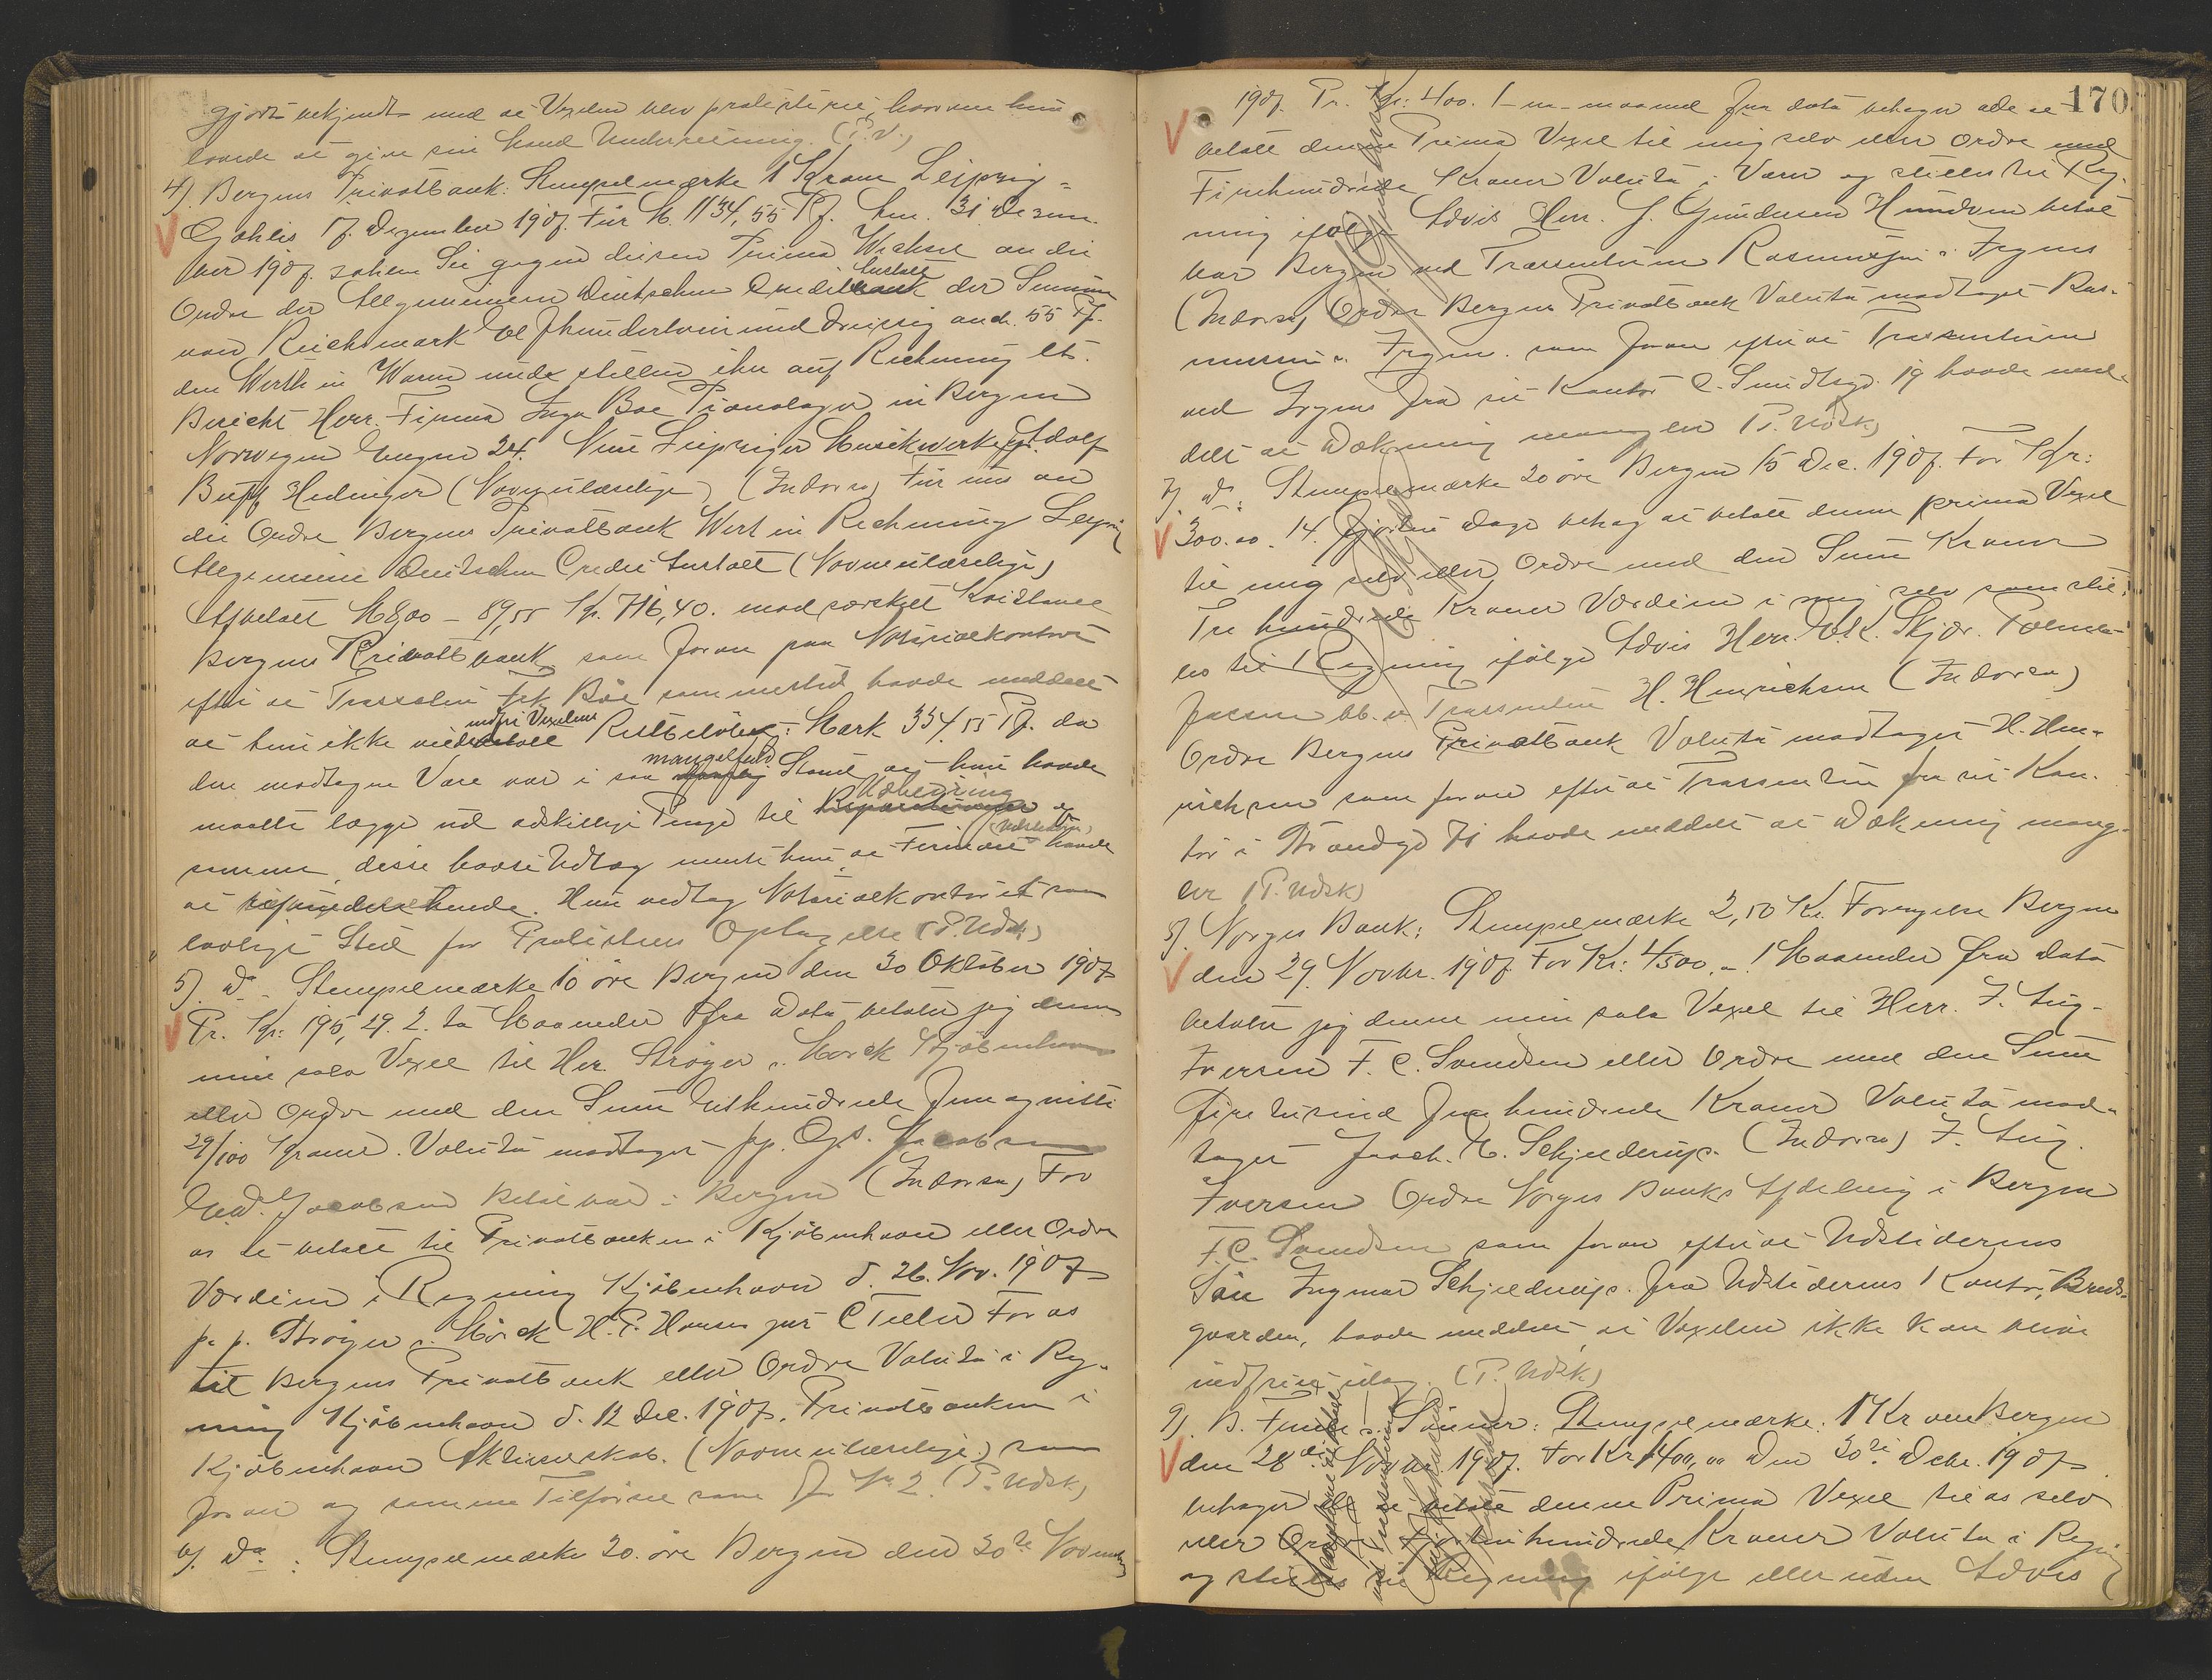 gjort bekjendt med at Vexelen blev protesteret, hvorom hun
lovede at give sin Mand Underretning. (P.V.)
4). Bergens Privatbank: Stempelmærke 1 Krone Leipzig-
Gohlis 17. Dezember 1907. Für M. 1134,55 Pf. Am. 31 Dezem-
ber 1907. zahlen Sie gegen diesen Prima Wechsel an die
Ordre der Allgemeinen Deutschen Credit Anstalt der Summe
von Reichsmark Elfhundertvierunddreissig auch. 55 Pf.
den Werth in Waren und stellen ihn auf Rechnung lt.
Bericht Herr. Firma Inga Böe Pianolager in Bergen
Norwegen Engen 24. Neue Leipziger Musikwerke Adolf
Buff Hedinger (Navn ulæselige) (Endorso) Für uns an
die Ordre Bergens Privatbank Wert in Rechnung Leipzig
Allgemeine Deutschen Credit Anstalt (Navne ulæselige)
Afbetalt M 800 - 89,55 Kr. 716,40. mod særskilt Kvittance
Bergens Privatbank som foran paa Notarialkontoret
efter at Trassatin Frk Böe sammesteds havde meddelt
at hun ikke indfri Vexelens Restbeløbet: Mark 334,55 Pf. da
den modtagne Vare var i saa mangelfuld Stand at hun havde
maatte lægge ud adskillige Penge til Udbedring af
samme, disse havde Udlæg mente hun at Firmaet (Udstederen) havde
at refundere hende. Hun vedtog Notarialkontoret som
lovlige Sted for Protestens Optagelse (P. Udsk.)
5). Do. Stempelmærke 10 öre Bergen den 30 Oktober 1907
Pr. Kr: 195,29. 2. to Maaneder fra Dato betaler jeg denne
min sola Vexel til Hrr. Ströyer & Mörck Kjöbenhavn
eller Ordre med den Sum Ethundrede fem og nitti
29/100 Kroner. Valuta modtaget pp. Ogs. Jacobsen
Jacobsen Betalbar i Bergen (Endorso) For
os at betale til Privatbanken i Kjöbenhavn eller Ordre
Værdien i Regning Kjöbenhavn d. 26. Nov. 1907
p. p. Ströyer & Mörck H. P. Hansen C Teller For os
til Bergens Privatbank eller Ordre Valuta i Reg-
ning Kjöbenhavn d. 12 Dec. 1907. Privatbanken i
Kjöbenhavn Aktieselskab. (Navne ulæselige) som
foran og samme Tilförsel som No 2. (P. Udsk.)
6). Do: Stempelmærke 20. öre Bergen den 30te November
170
1907. Pr. Kr: 400. 1 - en - maaned fra dato behager de at
betale denne Prima Vexel til mig selv eller ordre med
Firehundrede Kroner Valuta i Varer og stilles til Reg-
ning ifölge Advis Herr. J. Gundersen betal-
bar Bergen ved Trassentene Rasmussen & Irgens
(Endorso) Ordre Bergens Privatbank Valuta modtaget Ras-
mussen & Irgens. som foran efter at Trassentene
ved Irgens fra sit Kontor C. Sundtsgd. 19 havde med-
delt at Dækning mangler (P. Udsk)
7). Do: Stempelmærke 20 öre Bergen 15 Dec. 1907. For Kr:
300.00. 14. fjorten Dage behag at betale denne prima Vexel
til mig selv eller Ordre med den Sum Kroner
Tre hundrede Kroner Værdien i mig selv som stil-
les til Regning ifölge Advis Herr. Skjær.
Trassenten H. Henrichsen (Endorso)
Ordre Bergens Privatbank Valuta modtaget H. Hen-
richsen som foran efter at Trassenten fra sit Kon-
tor i Strandgd 71 havde meddelt at Dækning mang-
ler (P. Udsk)
8). Norges Bank: Stempelmærke 2,50 Kr. Fornyelse Bergen
den 29. Novbr. 1907 For Kr: 4500.- 1 Maaneder fra dato
betaler jeg denne min sola Vexel til Herr. J. Aug.
Iversen F. C. Svendsen eller Ordre med den Sum
fire tusind fem hundrede Kroner Valuta mod-
taget Joach. E. Schjelderup. (Endorso) J. Aug.
Iversen Ordre Norges Banks Afdeling i Bergen
F. C. Svendsen som foran efter at Udstederens
Sön Ingmar Schjelderup. fra Udstederens Kontor, Brads-
gaarden, havde meddelt at Vexelen ikke kan blive
indfriet idag. (P. Udsk)
9). B. Friele & Sönner: Stempelmærke. 1 Krone Bergen
den 28de Novbr. 1907. For Kr 1400,00 Den 30te Decbr. 1907
behager De at betale denne Prima Vexel til os selv
eller Ordre Fjortenhundrede Kroner Valuta i Regning
og stilles til Regning ifölge eller uden Advis